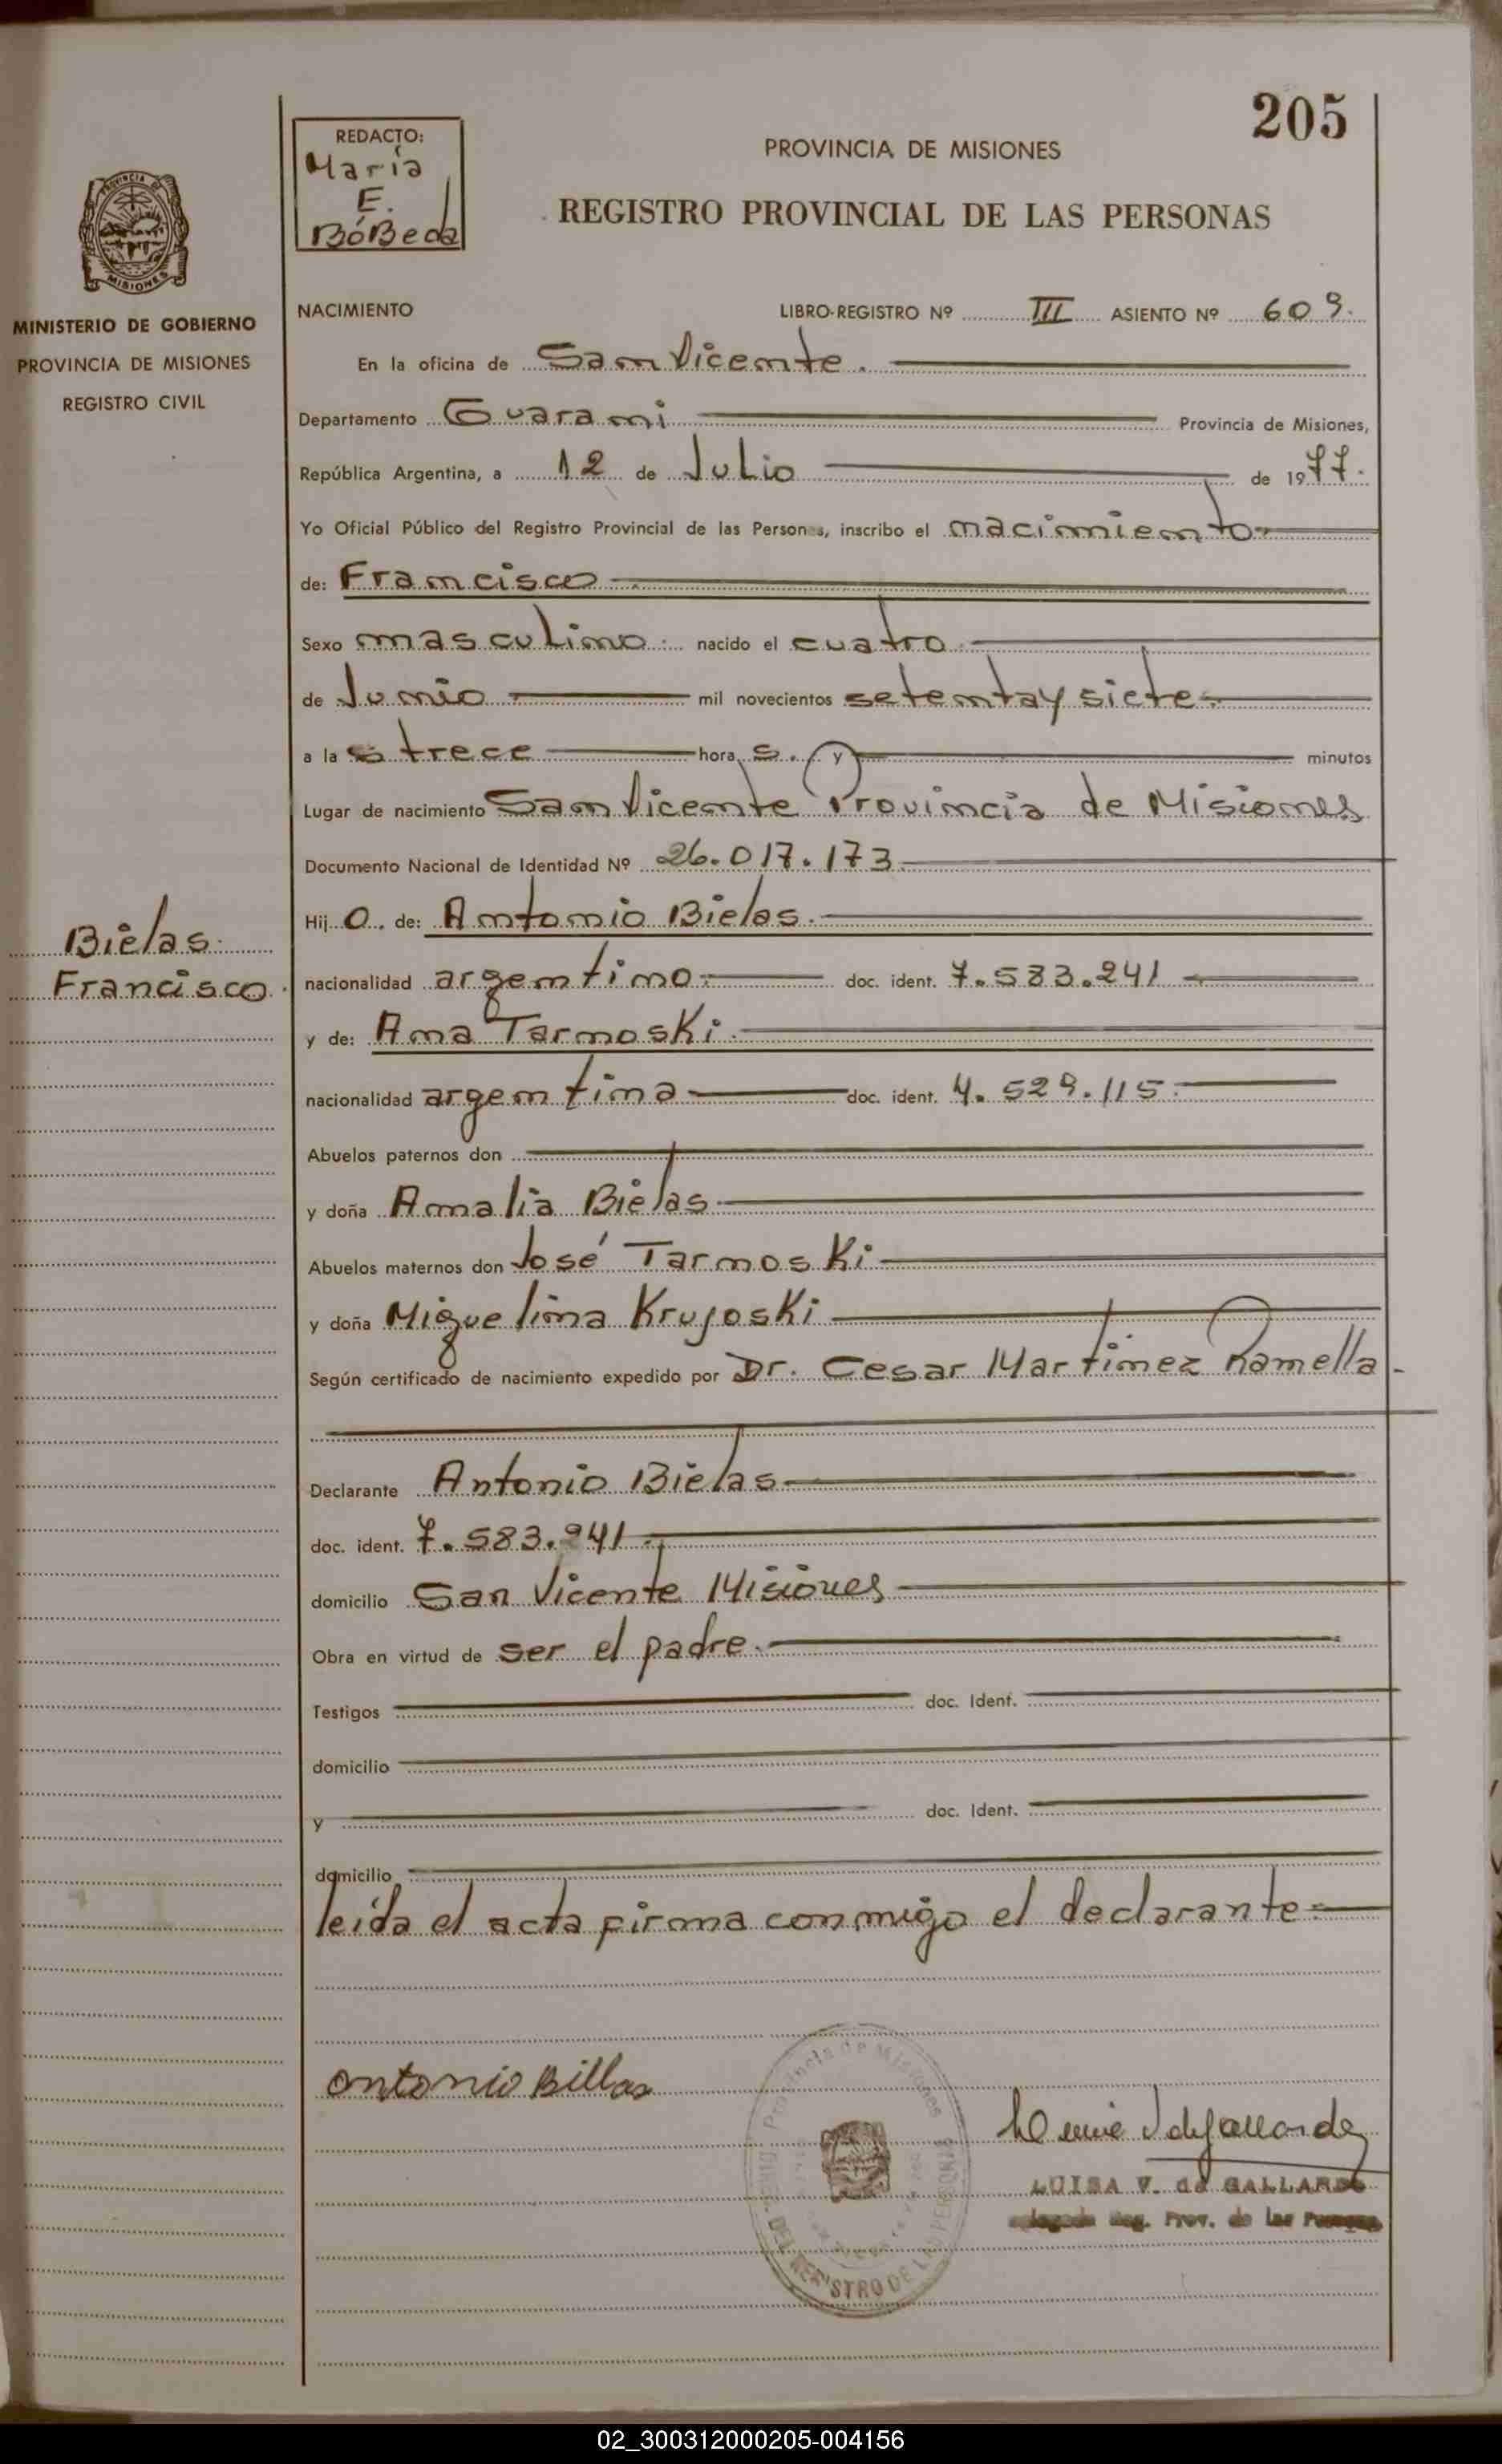 205
REDACTO:
María
E.
BóBeda
PROVINCIA DE MISIONES
REGISTRO PROVINCIAL DE LAS PERSONAS
PROVINCIA DE
MISIONES
MINISTERIO DE GOBIERNO
PROVINCIA DE MISIONES
REGISTRO CIVIL
NACIMIENTO LIBRO-REGISTRO Nº III ASIENTO Nº 609.
En la oficina de San Vicente.
Departamento Guarani Provincia de Misiones,
República Argentina, a 12 de Julio de 1977.
Yo Oficial Público del Registro Provincial de las Personas, inscribo el nacimiento
de: Francisco
Sexo masculino. nacido el cuatro
de Junio mil novecientos setenta y siete.
a las trece horas. y minutos
Lugar de nacimiento San Vicente Provincia de Misiones
Documento Nacional de Identidad Nº 26.017.173
Hijo. de: Antonio Bielas.
Bielas.
Francisco.
nacionalidad argentino. doc. ident. 7.583.241
y de: Ana Tarnoski.
nacionalidad argentina doc. ident. 4.529.115
Abuelos paternos don
y doña Amalia Bielas
Abuelos maternos don José Tarnoski
y doña Miguelina Krujoski
Según certificado de nacimiento expedido por Dr. Cesar Martinez Ramella
Declarante Antonio Bielas
doc. ident. 7.583.241
domicilio San Vicente Misiones
Obra en virtud de ser el padre.
Testigos doc. Ident.
domicilio
y doc. Ident.
domicilio
leída el acta firma conmigo el declarante.
Provincia de Misiones
DEL REGISTRO DE LAS PERSONAS
antonio Billas
LUISA V. de GALLARDO
Reg. Prov. de las Personas
02_300312000205-004156